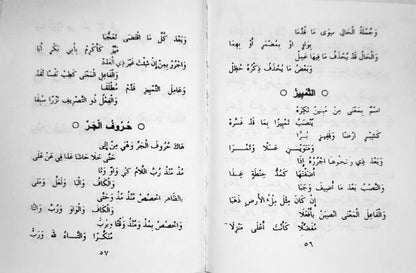 وَجُمْلَةُ الْحَالِ سِوَى مَا قُدِّمَا
بِوَاوٍ أَوْ بِمُضْمَرٍ أَوْ بِهِمَا
وَالْحَالُ قَدْ يُحْذَفُ مَا فِيهَا عَمِلْ
وَبَعْضُ مَا يُحْذَفُ ذِكْرُهُ حُظِلْ
التَّمْيِيزُ
اسْمٌ بِمَعْنَى مِنْ مُبِينٌ نَكِرَهْ
يُنْصَبُ تَمْيِيزًا بِمَا قَدْ فَسَّرَهْ
كَشِبْرٍ ارْضًا وَقَفِيزٍ بُرًّا
وَمَنَوَيْنِ عَسَلًا وَتَمْرَا
وَبَعْدَ ذِي وَنَحْوِهَا اجْرُرْهُ إِذَا
أَضَفْتَهَا كَمُدُّ حِنْطَةٍ غِذَا
وَالنَّصْبُ بَعْدَ مَا أُضِيفَ وَجَبَا
إِنْ كَانَ مِثْلَ مِلْءُ الْأَرْضِ ذَهَبَا
وَالْفَاعِلَ الْمَعْنَى انْصِبَنْ بِأَفْعَلَا
مُفَضِّلًا كَأَنْتَ أَعْلَى مَنْزِلَا
٥٦
وَبَعْدَ كُلِّ مَا اقْتَضَى تَعَجُّبَا
مَيِّزْ كَأَكْرِمْ بِأَبِي بَكْرٍ أَبَا
وَاجْرُرْ بِمِنْ إِنْ شِئْتَ غَيْرَ ذِي الْعَدَدْ
وَالْفَاعِلِ الْمَعْنَى كَطِبْ نَفْسًا تُفَدْ
وَعَامِلَ التَّمْيِيزِ قَدِّمْ مُطْلَقَا
وَالْفِعْلُ ذُو التَّصْرِيفِ نَزْرًا سُبِقَا
حُرُوفُ الْجَرِّ
هَاكَ حُرُوفَ الْجَرِّ وَهْيَ مِنْ إِلَى
حَتَّى خَلَا حَاشَا عَدَا فِي عَنْ عَلَى
مُذْ مُنْذُ رُبَّ اللَّامُ كَيْ وَاوٌ وَتَا
وَالْكَافُ وَالْبَا وَلَعَلَّ وَمَتَى
بِالظَّاهِرِ اخْصُصْ مُنْذُ مُذْ وَحَتَّى
وَالْكَافَ وَالْوَاوَ وَرُبَّ وَالتَّا
وَاخْصُصْ بِمُذْ وَمُنْذُ وَقْتًا وَبِرُبَّ
مُنَكَّرًا وَالتَّاءُ لِلّهِ وَرَبّْ
٥٧